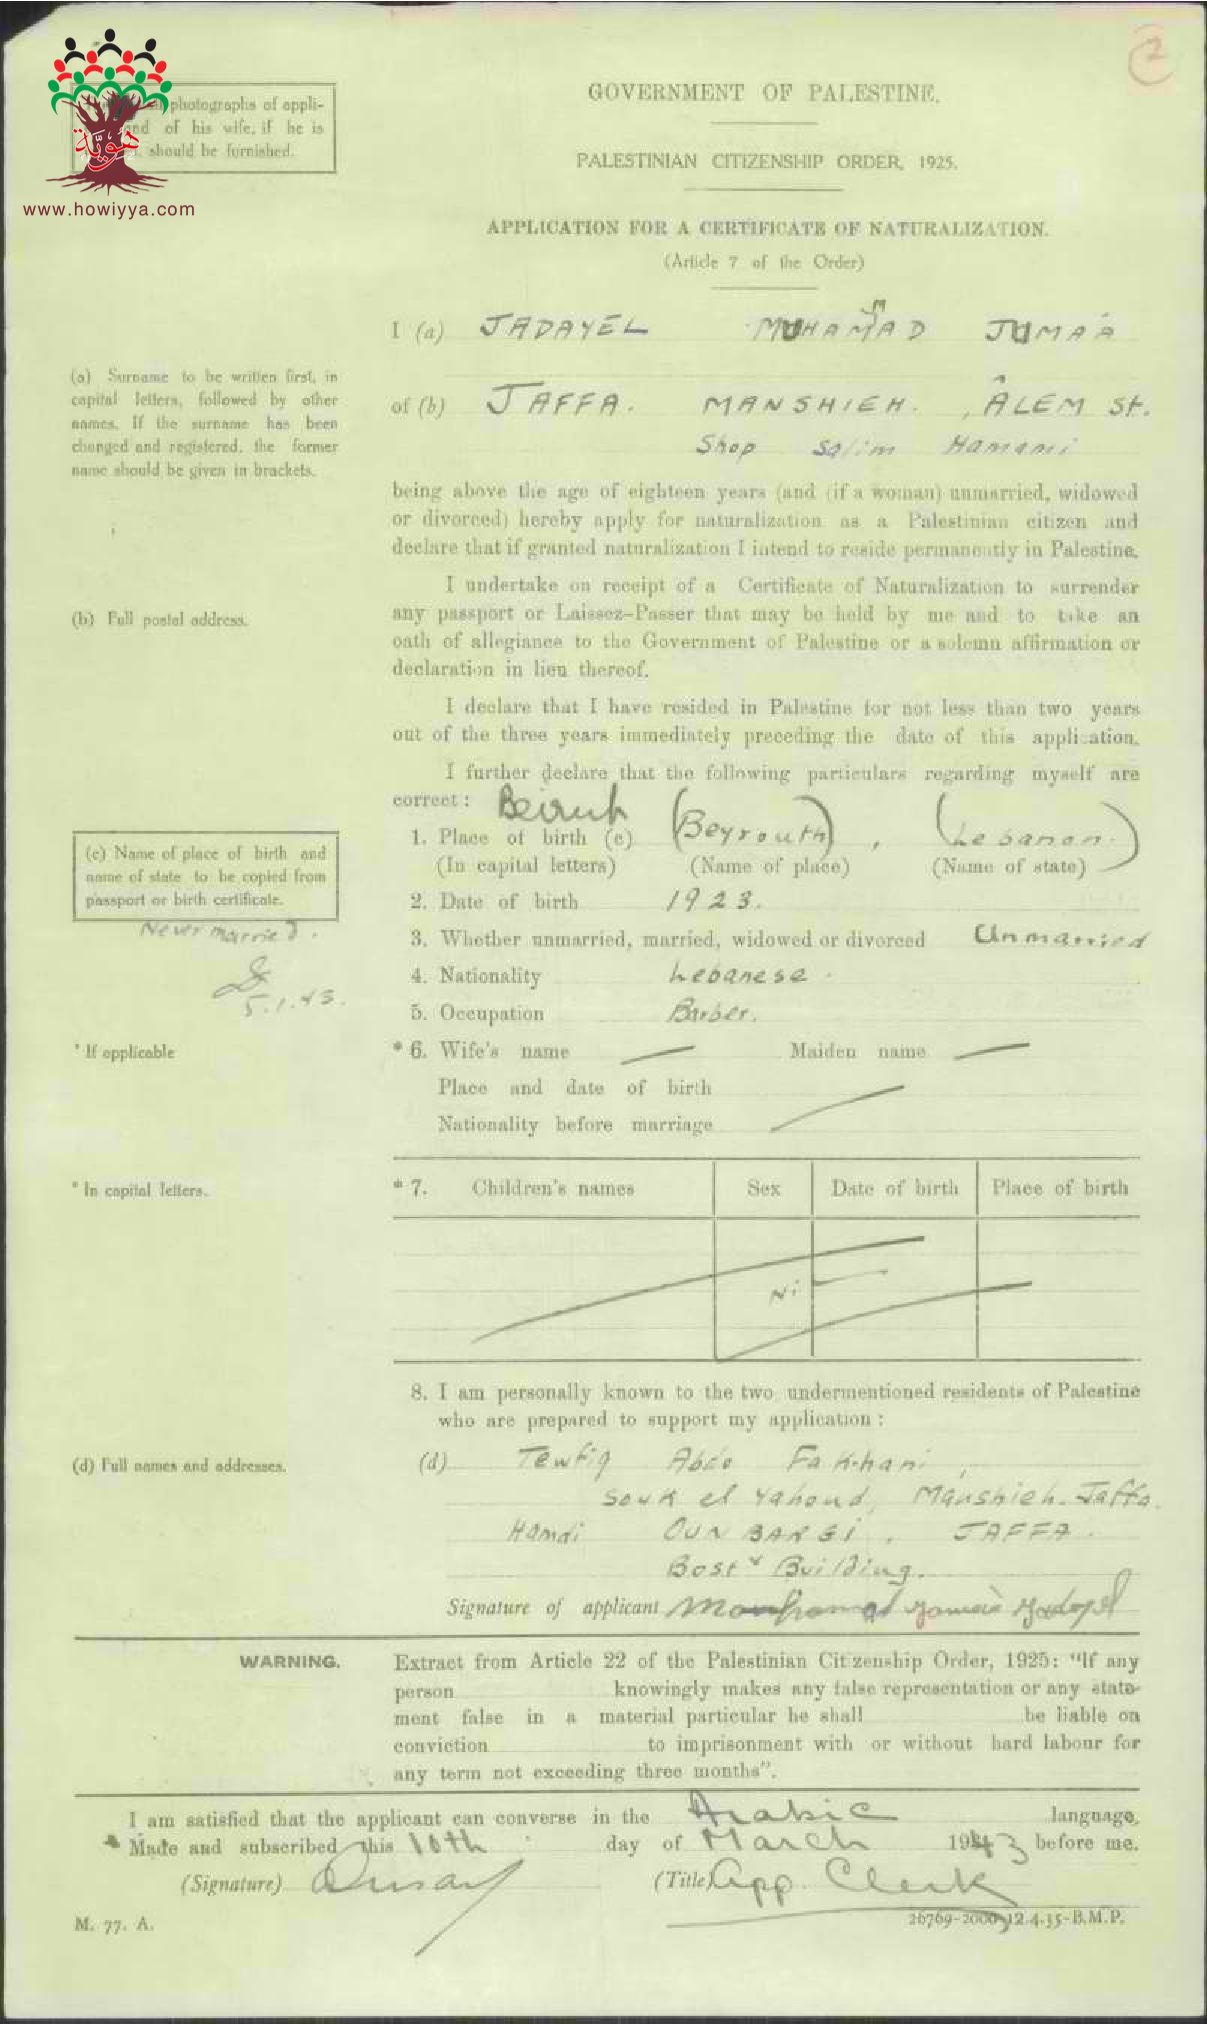 2
photographs of appli-
and of his wife, if he is
should be furnished.
هويّة
www.howiyya.com
GOVERNMENT OF PALESTINE.
PALESTINIAN CITIZENSHIP ORDER, 1925.
APPLICATION FOR A CERTIFICATE OF NATURALIZATION.
(Article 7 of the Order)
I (a) JADAYEL MUHAMMAD JUMA'A
(a) Surname to be written first, in
capital letters, followed by other
names. If the surname has been
changed and registered, the former
name should be given in brackets.
of (b) JAFFA. MANSHIEH. , ÂLEM St.
Shop Salim Hamami
being above the age of eighteen years (and (if a woman) unmarried, widowed
or divorced) hereby apply for naturalization as a Palestinian citizen and
declare that if granted naturalization I intend to reside permanently in Palestine.
I undertake on receipt of a Certificate of Naturalization to surrender
(b) Full postal address.
any passport or Laissez-Passer that may be held by me and to take an
oath of allegiance to the Government of Palestine or a solemn affirmation or
declaration in lieu thereof.
I declare that I have resided in Palestine for not less than two years
out of the three years immediately preceding the date of this application.
I further declare that the following particulars regarding myself are
correct :
Beirut (Beyrouth) , (Lebanon.)
1. Place of birth (c)
(In capital letters) (Name of place) (Name of state)
(c) Name of place of birth and
name of state to be copied from
passport or birth certificate.
Never married.
5.1.43.
2. Date of birth 1923.
3. Whether unmarried, married, widowed or divorced Unmarried
4. Nationality Lebanese.
5. Occupation Barber.
* If applicable
* 6. Wife's name Maiden name
Place and date of birth
Nationality before marriage
* In capital letters.
* 7. Children's names Sex Date of birth Place of birth
Nil
8. I am personally known to the two undermentioned residents of Palestine
who are prepared to support my application :
(d) Full names and addresses.
(d) Tewfiq Abdo Fakhani,
Souk el Yahoud, Manshieh. Jaffa.
Hamdi OUNBARGI, JAFFA.
Building.
Signature of applicant
WARNING. Extract from Article 22 of the Palestinian Citizenship Order, 1925: "If any
person knowingly makes any false representation or any state-
ment false in a material particular he shall be liable on
conviction to imprisonment with or without hard labour for
any term not exceeding three months".
I am satisfied that the applicant can converse in the Arabic language,
* Made and subscribed this 10th day of March 1943 before me.
(Signature) (Title) App. Clerk
M. 77. A. 26769-2000-12.4.35-B.M.P.